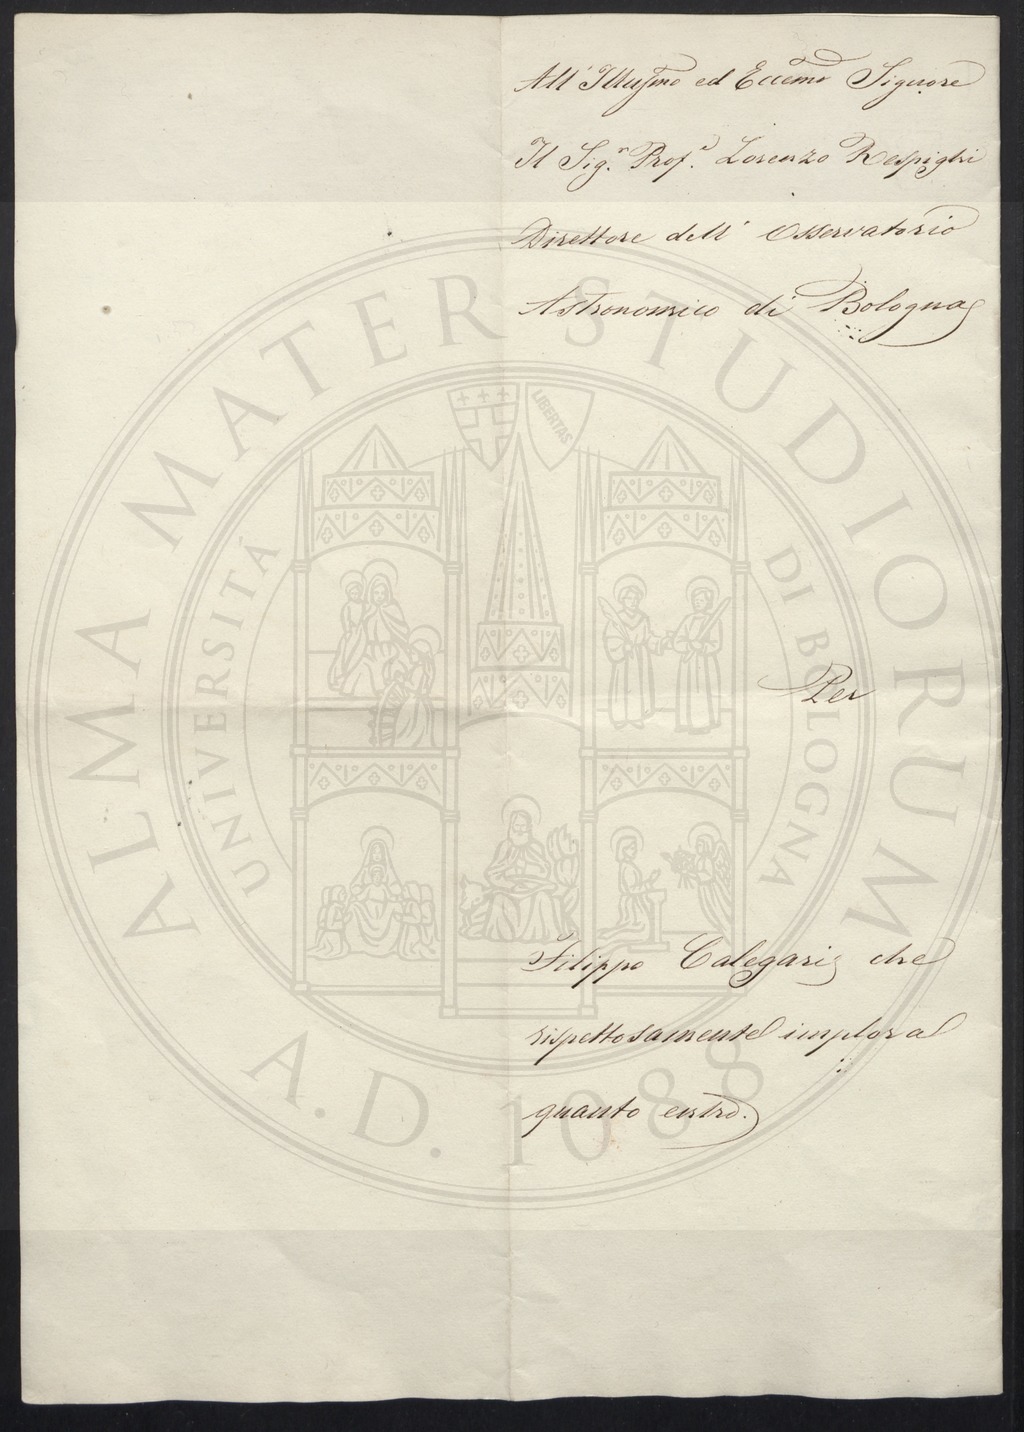 All' Illusmo ed Eccemo Signore
Il Sig.r Prof.e Lorenzo Respighi
Direttore dell' Osservatorio
Astronomico di Bologna
Per
Filippo Calegari che
rispettosamente implora
quanto entro.
ALMA MATER STUDIORUM
A.D. 1088
UNIVERSITÀ DI BOLOGNA
LIBERTAS